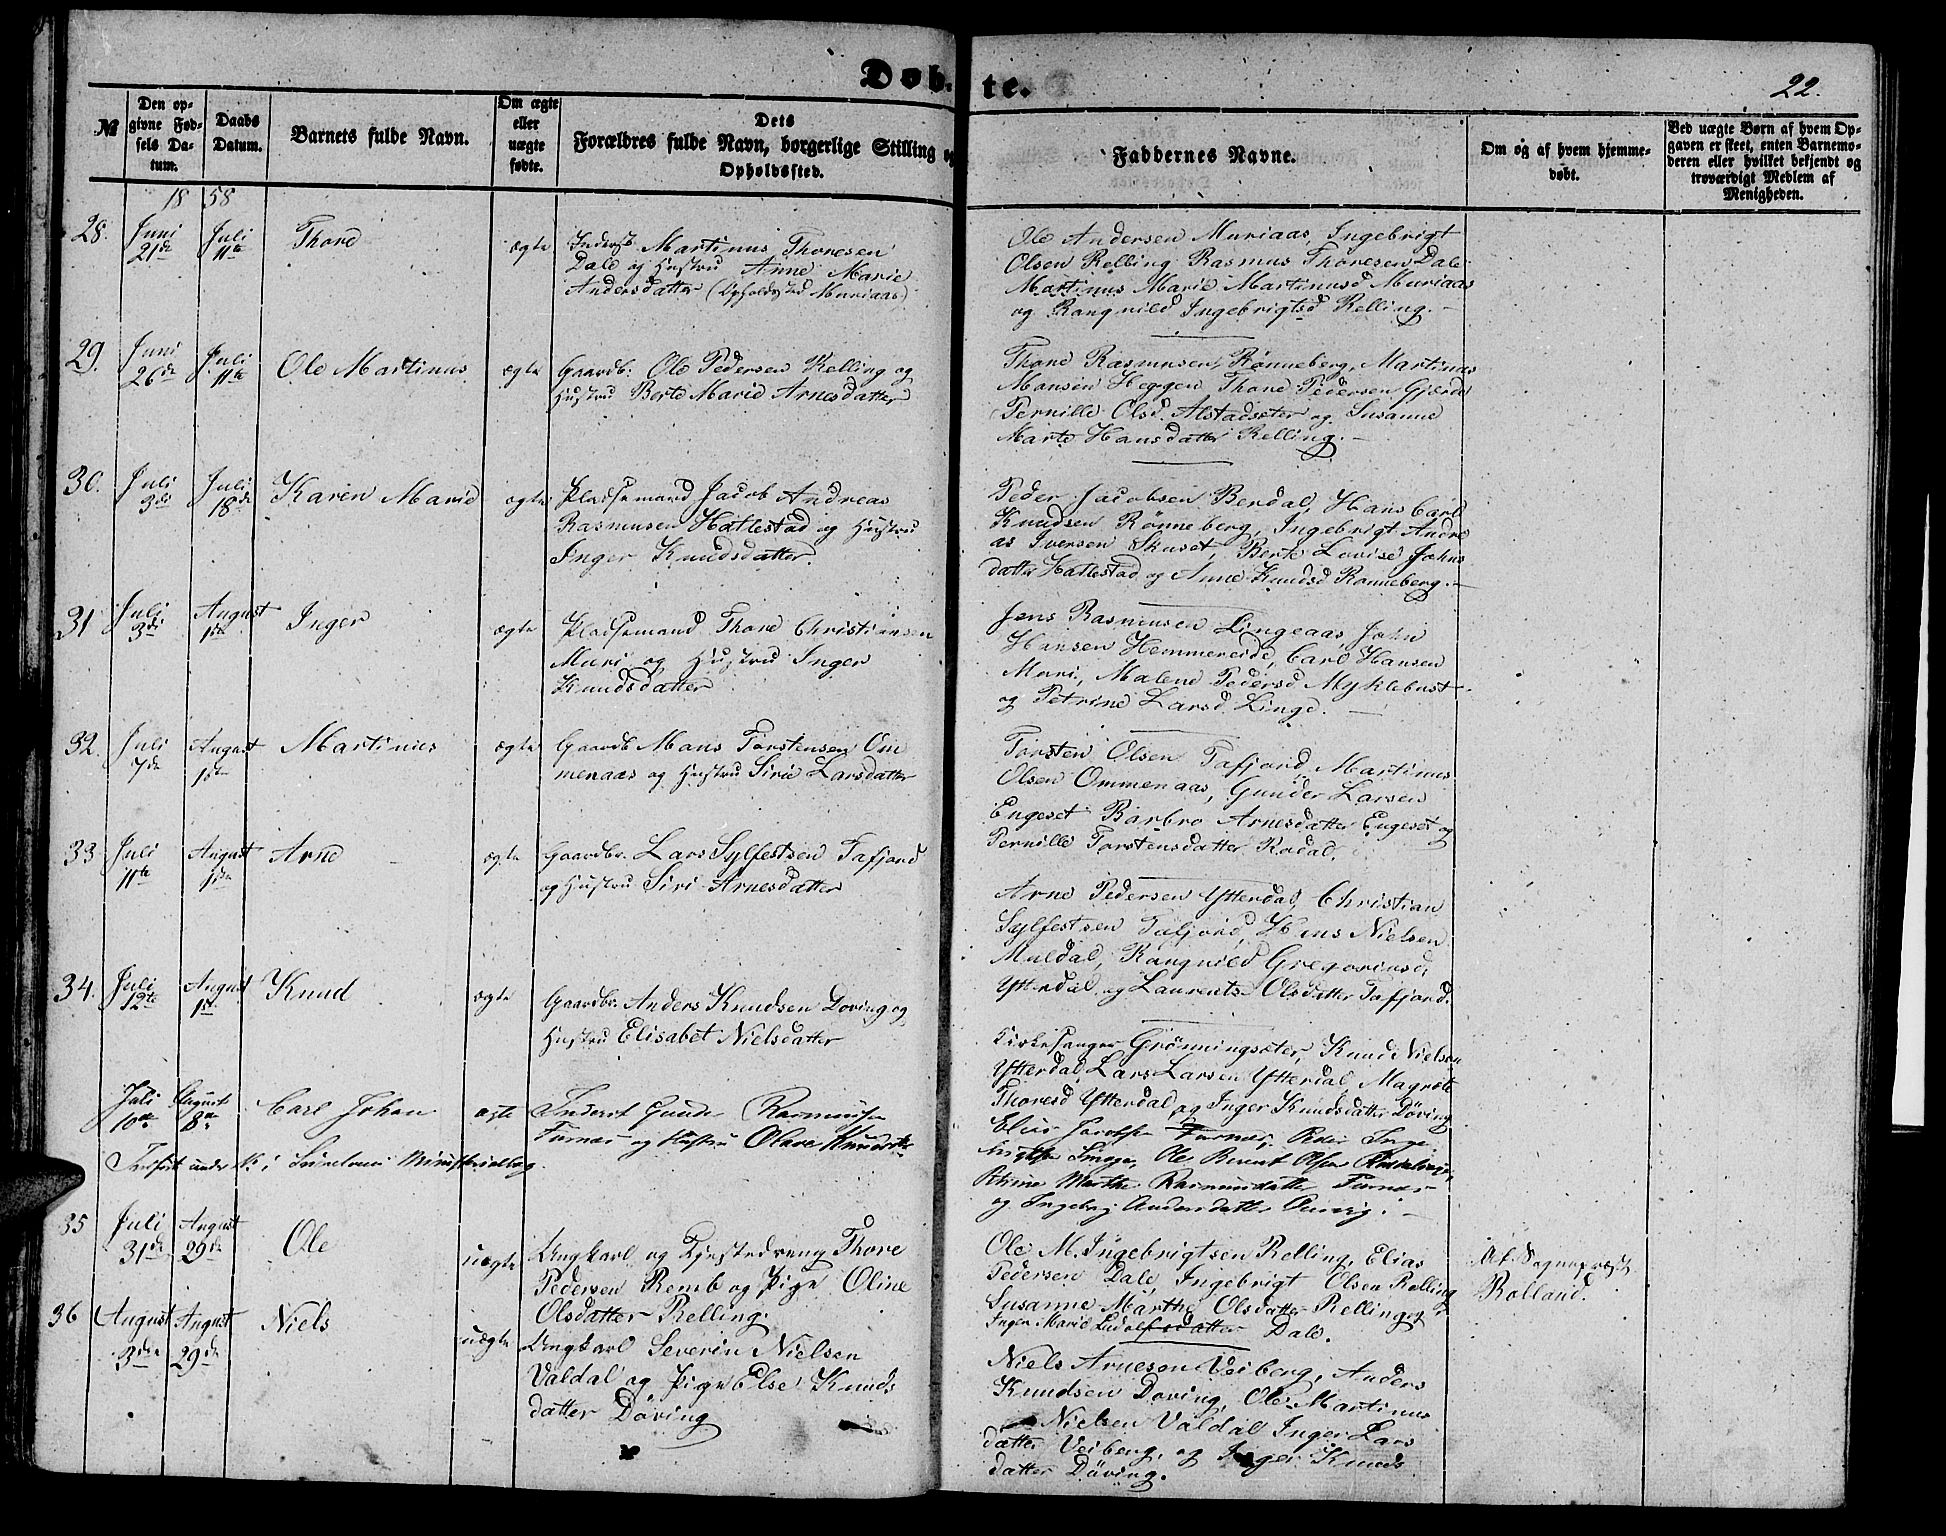 Døb-
te.
22.
№
Den op-
givne Fød-
sels Da-
tum.
Daabs
Datum.
Barnets fulde Navn.
Om ægte
eller
uægte
fødte.
Dets
Forældres fulde Navn, borgerlige Stilling og
Opholdssted.
Faddernes Navne.
Om og af hvem hjemme-
døbt.
Ved uægte Børn af hvem Op-
gaven er skeet, enten Barnemo-
deren eller hvilket bekjendt og
troværdigt Medlem af
Menigheden.
18 58
28. Juni 21de Juli 11te Thore ægte Inderst Martinus Thoresen
Dale og Hustru Anne Marie
Andersdatter (Opholdssted Muriaas)
Ole Andersen Muriaas, Ingebrigt
Olsen Relling Rasmus Thoresen Dale
Martinus Marie Martinusd Muriaas
og Rangnild Ingebrigtsd Relling.
29. Juni 26de Juli 11te Ole Martinus ægte Gaardb. Ole Pedersen Relling og
Hustru Berte Marie Arnesdatter
Thore Rasmusen Rønneberg, Martinus
Monsen Heggen Thore Pedersen Gjærde
Pernille Olsd. Alstadsæter og Susanne
Marte Hansdatter Relling.
30. Juli 3die Juli 18de Karen Marie ægte Pladsemand Jacob Andreas
Rasmusen Hatlestad og Hustru
Inger Knudsdatter.
Peder Jacobsen Berdal, Hans Carl
Knudsen Rønneberg, Ingebrigt Andre
as Iversen Skuset, Berte Lovise Johns
datter Hatlestad og Anne Knudsd Rønneberg.
31 Juli 3die August 1ste Inger ægte Pladsemand Thore Christiansen
Muri og Hustru Inger
Knudsdatter
Jens Rasmusen Lingeaas John
Hansen Hemmereide, Carl Hansen
Muri, Malene Pedersd Myklebust
og Petrine Larsd. Linge.
32. Juli 7de August 1ste Martinus ægte Gaardb Mons Torstensen Om
menaas og Hustru Sirie Larsdatter
Torsten Olsen Tafjord, Martinus
Olsen Ommenaas, Gunder Larsen
Engeset Barbro Arnesdatter Engeset og
Pernille Torstensdatter Rødal.
33 Juli 11te August 1ste Arne ægte Gaardbr. Lars Sylfestsen Tafjord
og Hustru Siri Arnesdatter
Arne Pedersen Ytterdal, Christian
Sylfestsen Tafjord, Hans Nielsen
Muldal, Rangnild Gregoriusd,
Ytterdal og Laurentse Olsdatter Tafjord.
34. Juli 12te August 1ste Knud ægte Gaardbr. Anders Knudsen Døving og
Hustru Elisabet Nielsdatter
Kirkesanger Grønningsæter, Knud Nielsen
Ytterdal, Lars Larsen Ytterdal, Magrete
Thoresd Ytterdal og Inger Knudsdatter Døving
Juli 10de August 8de Carl Johan ægte Inderst Gunder Rasmusen
Furnæs og Hustru Olave Knudsdtr
Elias Jacobsen Furnæs, Peder Inge
brigtsen Linge, Ole Berent Olsen
Stine Marthe Rasmusdatter Furnæs
og Ingeborg Andersdatter
Indført under № i Ministerialbog
35 Juli 31te August 29de Ole uægte Ungkarl og Tjenestedreng Thore
Pedersen Remb og Pige Oline
Olsdatter Relling.
Ole M. Ingebrigtsen Relling, Elias
Pedersen Dale, Ingebrigt Olsen Relling
Susanne Marthe Olsdatter Relling og
Inger Marie Ludolfsdatter Dale.
Af Sognepræst
Rolland.
36 August 3die August 29de Niels uægte Ungkarl Severin Nielsen
Valdal og Pige Else Knuds
datter Døving
Niels Arnesen Veiberg, Anders
Knudsen Døving, Ole Martinus
Nielsen Valdal Inger Lars
datter Veiberg, og Inger Knuds
datter Døving.